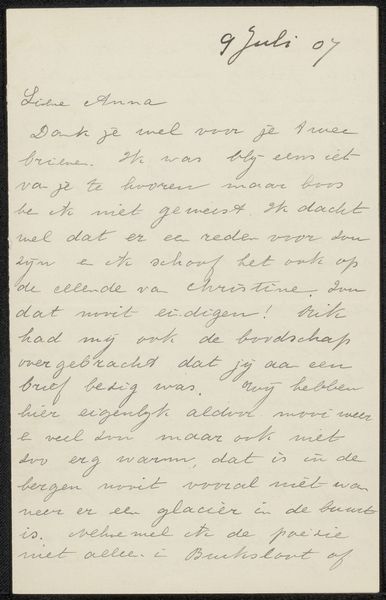 9 Juli 07
Lieve Anna
Dank je wel voor je twee
brieven. Ik was blij eens iet
van je te hooren maar boos
be ik niet geweest. Ik dacht
wel dat er een reden voor zou
zijn e ik schoof het ook op
de ellende van Christine. Zou
dat nooit eindigen! Rik
had mij ook de boodschap
overgebracht dat jij aan een
brief bezig was. Wij hebben
hier eigenlijk aldoor mooi weer
e veel zon maar ook niet
zoo erg warm, dat is in de
bergen nooit vooral niet wan
neer er een glacier in de buurt
is. ik de poëzie
niet alleen i Buiksloot of